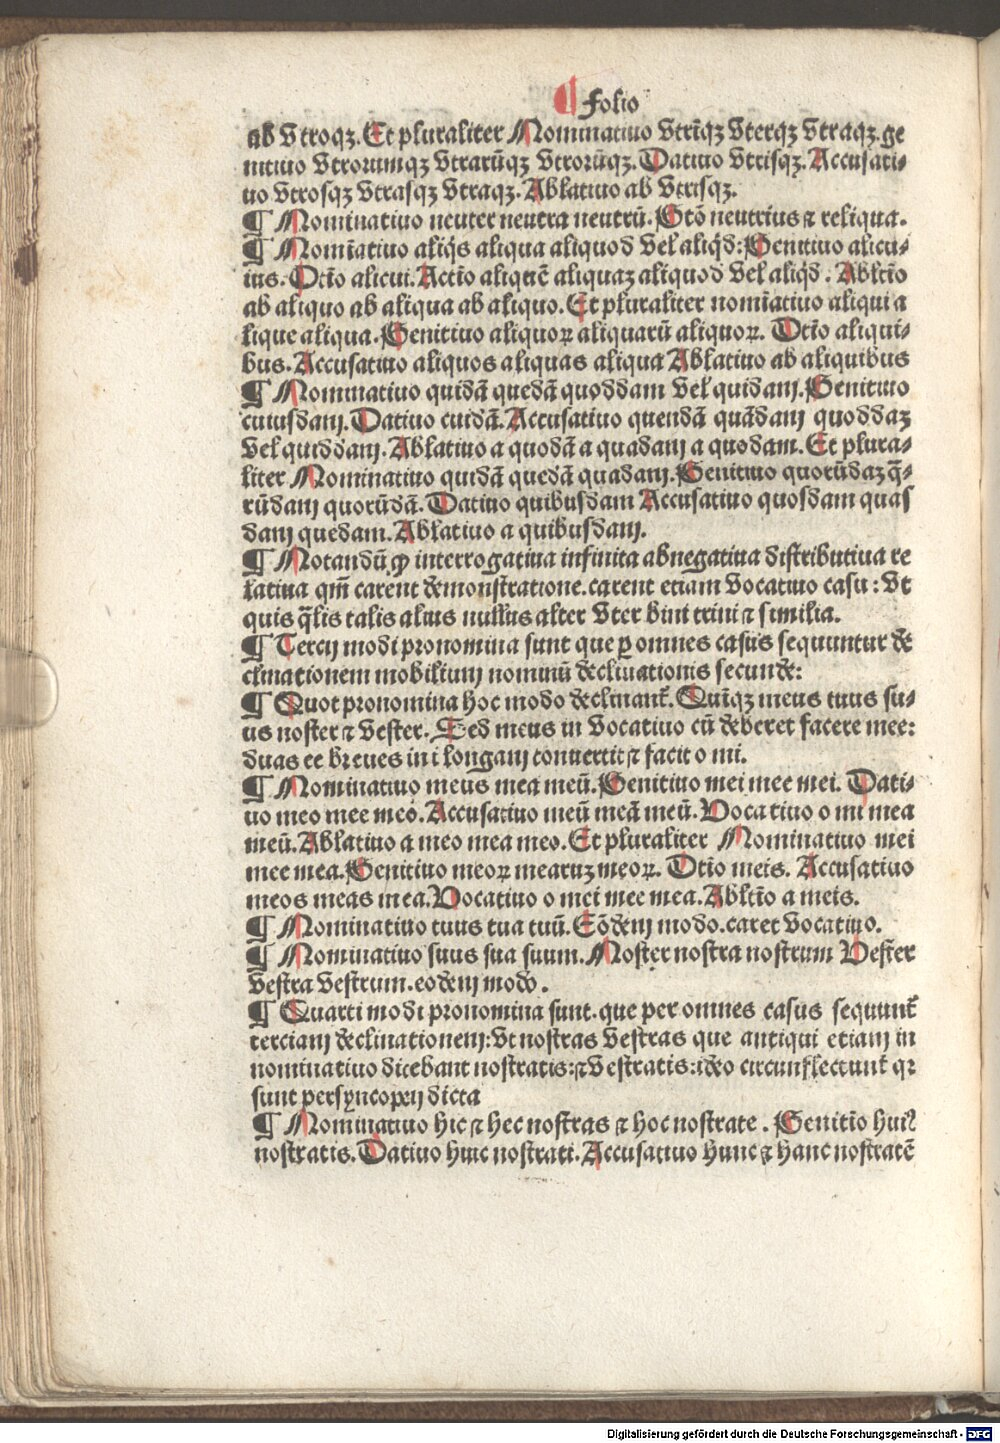 ¶ Folio
ab vtroqꝫ. Et pluraliter Nominatiuo vtriqꝫ vterqꝫ vtraqꝫ. ge
nitiuo vtrorumqꝫ vtrarūqꝫ vtrorūqꝫ. Datiuo vtrisqꝫ. Accusati-
uo vtrosqꝫ vtrasqꝫ vtraqꝫ. Ablatiuo ab vtrisqꝫ.
¶ Nominatiuo neuter neutra neutrū. Gtō neutrius ⁊ reliqua.
¶ Nomīatiuo aliq̇s aliqua aliquod vel aliq̇d: Genitiuo alicu-
ius. Dtīo alicui. Actīo aliquē aliquaꝫ aliquod vel aliq̇d. Abltīo
ab aliquo ab aliqua ab aliquo. Et pluraliter nomīatiuo aliqui a
lique aliqua. Genitiuo aliquoꝝ aliquarū aliquoꝝ. Dtīo aliqui-
bus. Accusatiuo aliquos aliquas aliqua Ablatiuo ab aliquibus
¶ Nominatiuo quidā quedā quoddam vel quidam. Genitiuo
cuiusdam. Datiuo cuidā. Accusatiuo quendā quādam quoddaꝫ
vel quiddam. Ablatiuo a quodā a quadam a quodam. Et plura-
liter Nominatiuo quidā quedā quadam. Genitiuo quorūdaꝫ q̄-
rūdam quorūdā. Datiuo quibusdam Accusatiuo quosdam quas
dam quedam. Ablatiuo a quibusdam.
¶ Notandū ꝙ interrogatiua infinita abnegatiua distributiua re
latiua qm̄ carent demonstratione. carent etiam vocatiuo casu: vt
quis q̄lis talis alius nullus alter vter bini trini ⁊ similia.
¶ Tercij modi pronomina sunt que ꝑ omnes casus sequuntur de
clinationem mobilium nominū declinationis secunde:
¶ Quot pronomina hoc modo declinant̄. Quīqꝫ meus tuus su-
us noster ⁊ vester. Sed meus in vocatiuo cū deberet facere mee:
duas ee breues in i longam conuertit ⁊ facit o mi.
¶ Nominatiuo meus mea meū. Genitiuo mei mee mei. Dati-
uo meo mee meo. Accusatiuo meū meā meū. Vocatiuo o mi mea
meū. Ablatiuo a meo mea meo. Et pluraliter Nominatiuo mei
mee mea. Genitiuo meoꝝ mearuꝫ meoꝝ. Dtīo meis. Accusatiuo
meos meas mea. Vocatiuo o mei mee mea. Abltīo a meis.
¶ Nominatiuo tuus tua tuū. Eōdem modo. caret vocatiuo.
¶ Nominatiuo suus sua suum. Noster nostra nostrum Vest̄er
vestra vestrum. eodem modo.
¶ Quarti modi pronomina sunt. que per omnes casus sequunt̄
terciam declinationem: vt nostras vestras que antiqui etiam in
nominatiuo dicebant nostratis: ⁊ vestratis: ideo circunflectunt̄ qꝛ
sunt per syncopam dicta
¶ Nominatiuo hic ⁊ hec nostras ⁊ hoc nostrate. Genitīo huiꝰ
nostratis. Datiuo huic nostrati. Accusatiuo hunc ⁊ hanc nostratē
Digitalisierung gefördert durch die Deutsche Forschungsgemeinschaft - DFG